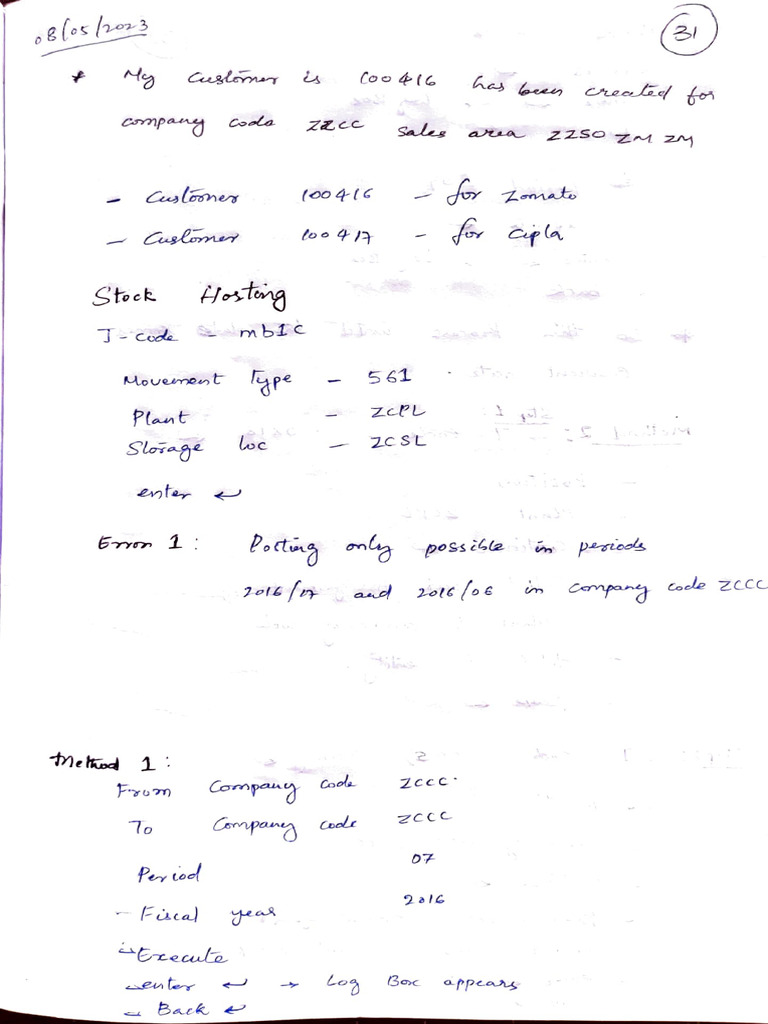 08/05/2023
31
* My customer is 100416 has been created for
company code ZZCC sales area ZZSO ZM ZM
- Customer 100416 - for Zomato
- Customer 100417 - for Cipla
Stock Hosting
T-code - mb1c
Movement Type - 561
Plant - ZCPL
Storage loc - ZCSL
enter ↵
Error 1: Posting only possible in periods
2016/07 and 2016/06 in company code ZCCC
Method 1:
From Company code ZCCC
To Company code ZCCC
Period 07
- Fiscal year 2016
- Execute
- enter ↵ → Log Box appears
- Back ↵